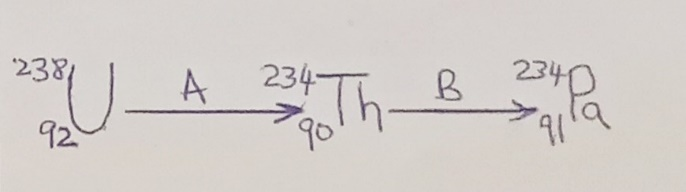 ²³⁸₉₂U A→ ²³⁴₉₀Th B→ ²³⁴₉₁Pa